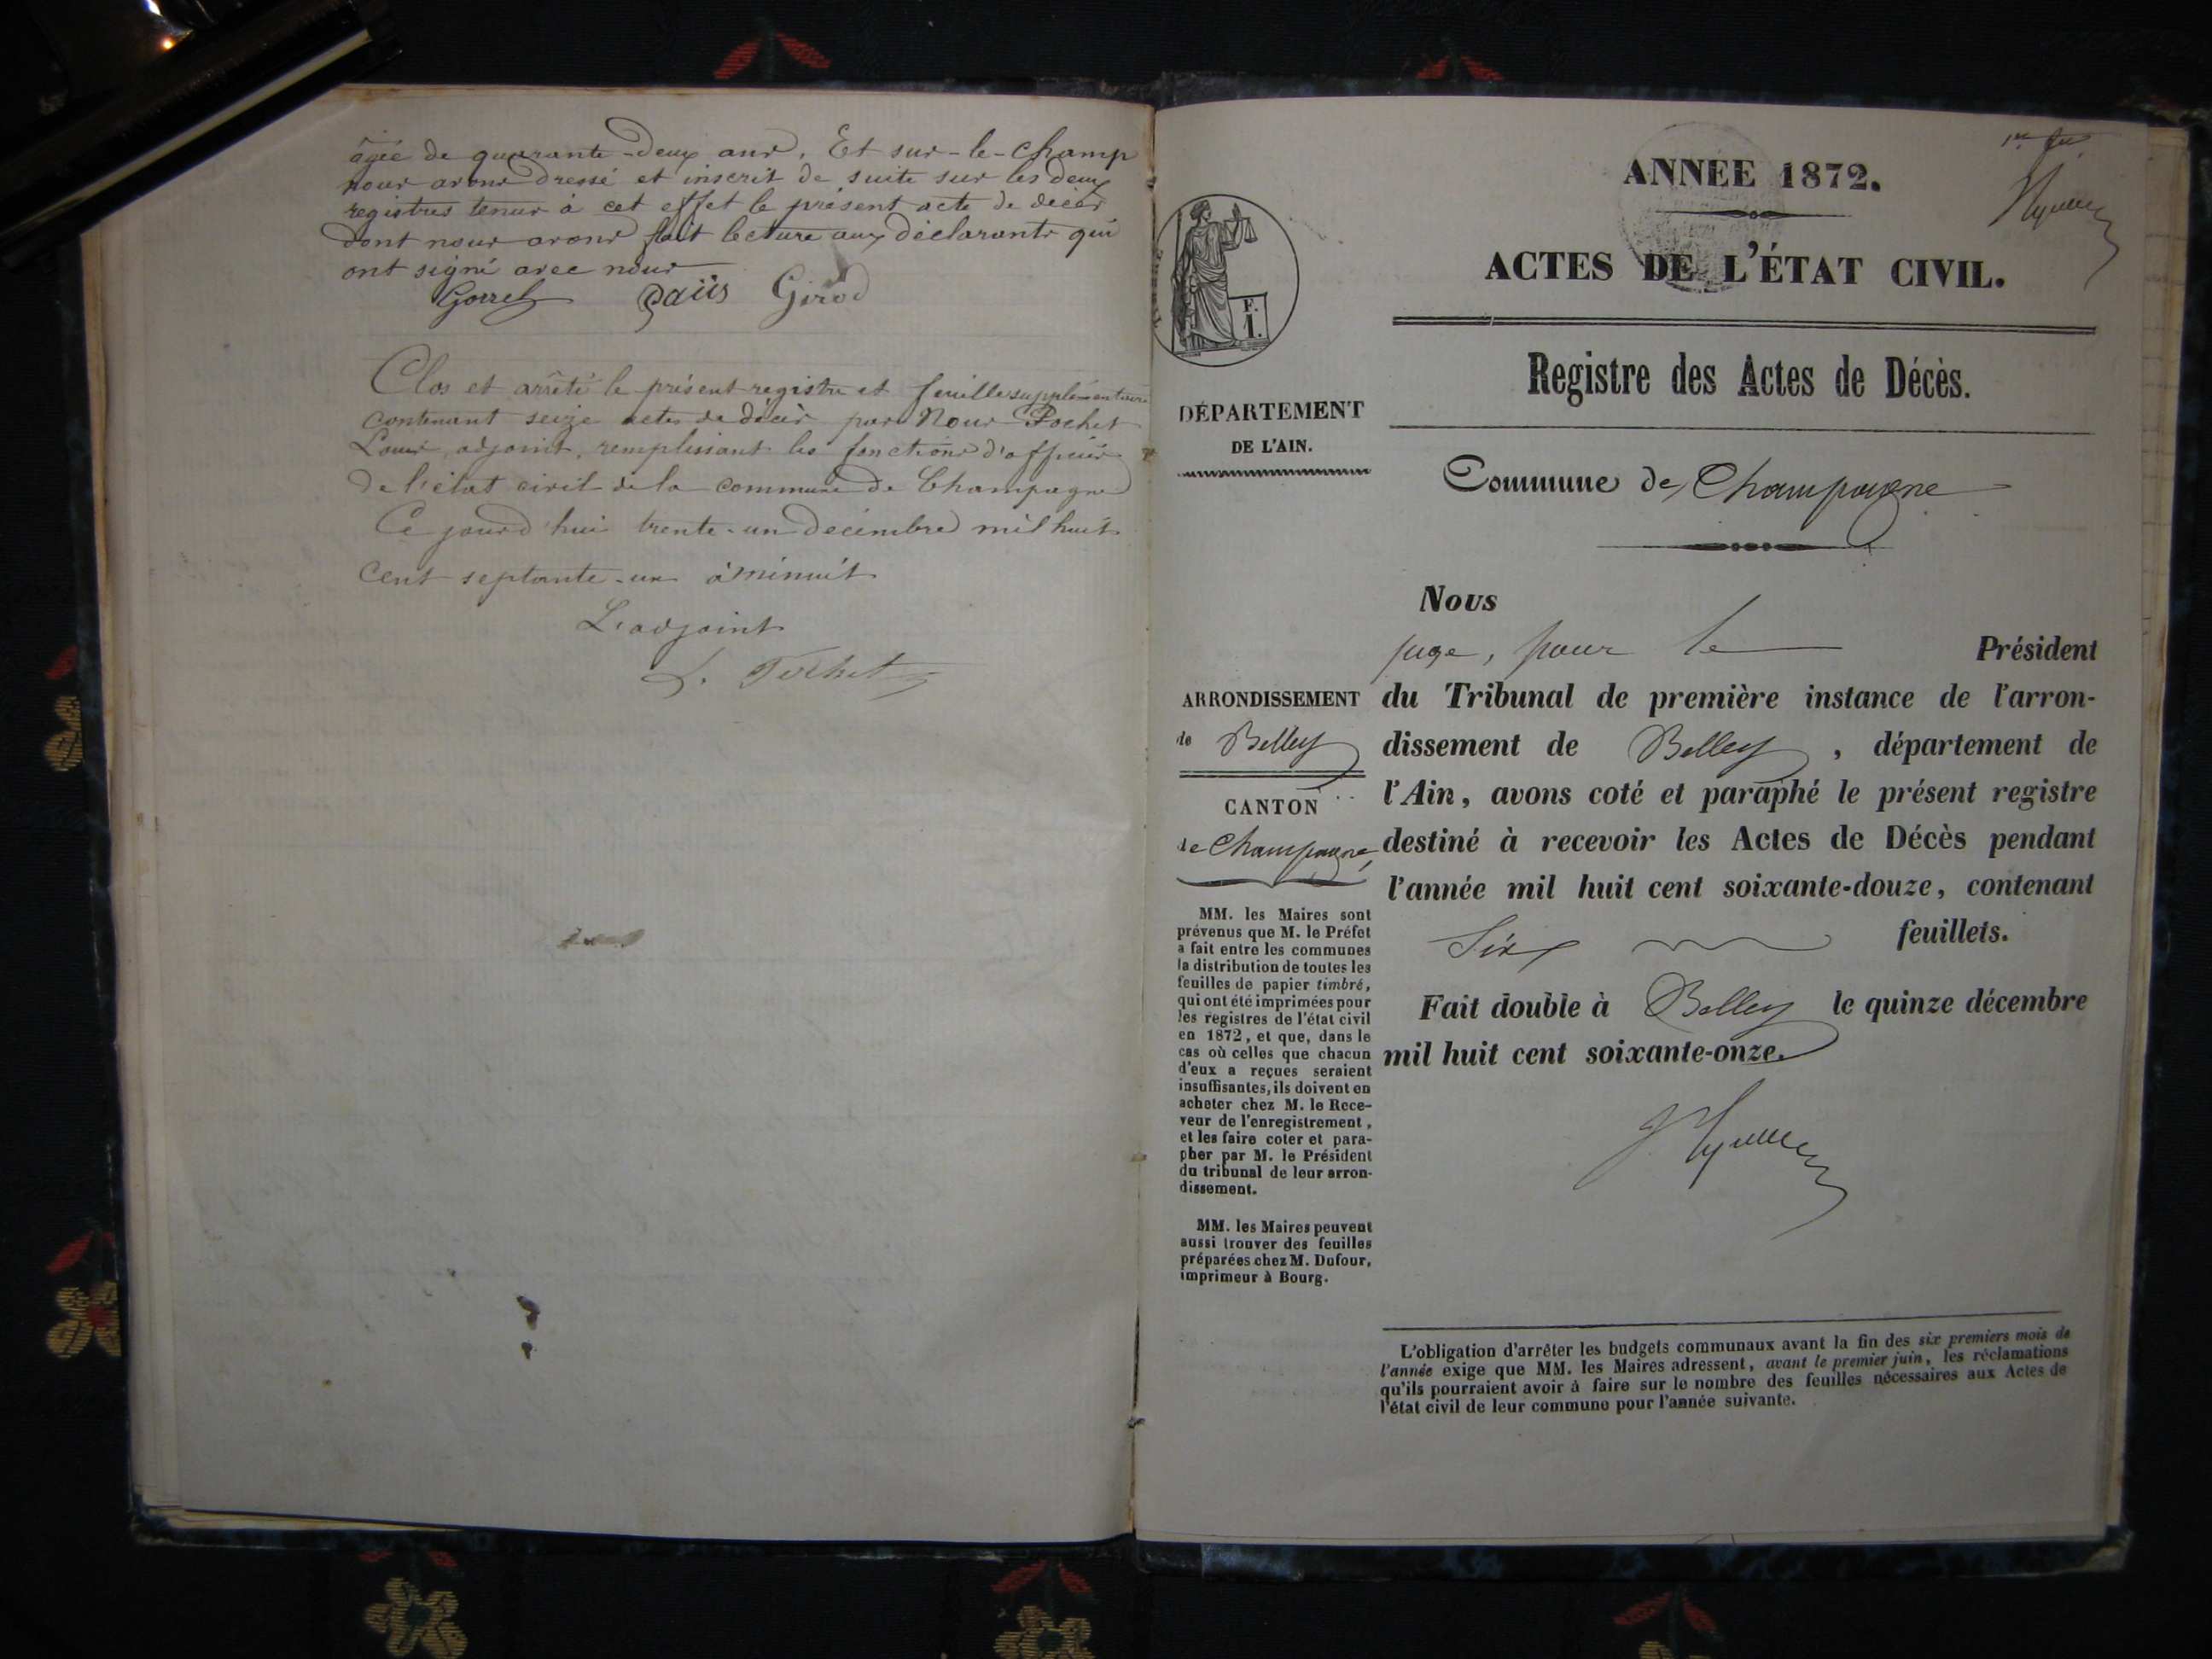 âgée de quarante-deux ans. Et sur-le-champ
nous avons dressé et inscrit de suite sur les deux
registres tenus à cet effet le présent acte de décès
dont nous avons fait lecture aux déclarants qui
ont signé avec nous
Gorrel Girod
Clos et arrêté le présent registre et feuille supplémentaire
contenant seize actes de décès par Nous Pochet
Louis, adjoint, remplissant les fonctions d'officier
de l'état civil de la commune de Champagne
Ce jourd'hui trente-un décembre mil huit
cent septante-un à minuit
L'adjoint
L. Pochet
ANNÉE 1872.
ACTES DE L'ÉTAT CIVIL.
F.
1.
Registre des Actes de Décès.
DÉPARTEMENT
DE L'AIN.
Commune de Champagne
Nous
juge, pour le Président
du Tribunal de première instance de l'arron-
dissement de Belley, département de
l'Ain, avons coté et paraphé le présent registre
destiné à recevoir les Actes de Décès pendant
l'année mil huit cent soixante-douze, contenant
Six feuillets.
Fait double à Belley le quinze décembre
mil huit cent soixante-onze.
ARRONDISSEMENT
de Belley
CANTON
de Champagne
MM. les Maires sont
prévenus que M. le Préfet
a fait entre les communes
la distribution de toutes les
feuilles de papier timbré,
qui ont été imprimées pour
les registres de l'état civil
en 1872, et que, dans le
cas où celles que chacun
d'eux a reçues seraient
insuffisantes, ils doivent en
acheter chez M. le Rece-
veur de l'enregistrement,
et les faire coter et para-
pher par M. le Président
du tribunal de leur arron-
dissement.
MM. les Maires peuvent
aussi trouver des feuilles
préparées chez M. Dufour,
imprimeur à Bourg.
L'obligation d'arrêter les budgets communaux avant la fin des six premiers mois de
l'année exige que MM. les Maires adressent, avant le premier juin, les réclamations
qu'ils pourraient avoir à faire sur le nombre des feuilles nécessaires aux Actes de
l'état civil de leur commune pour l'année suivante.